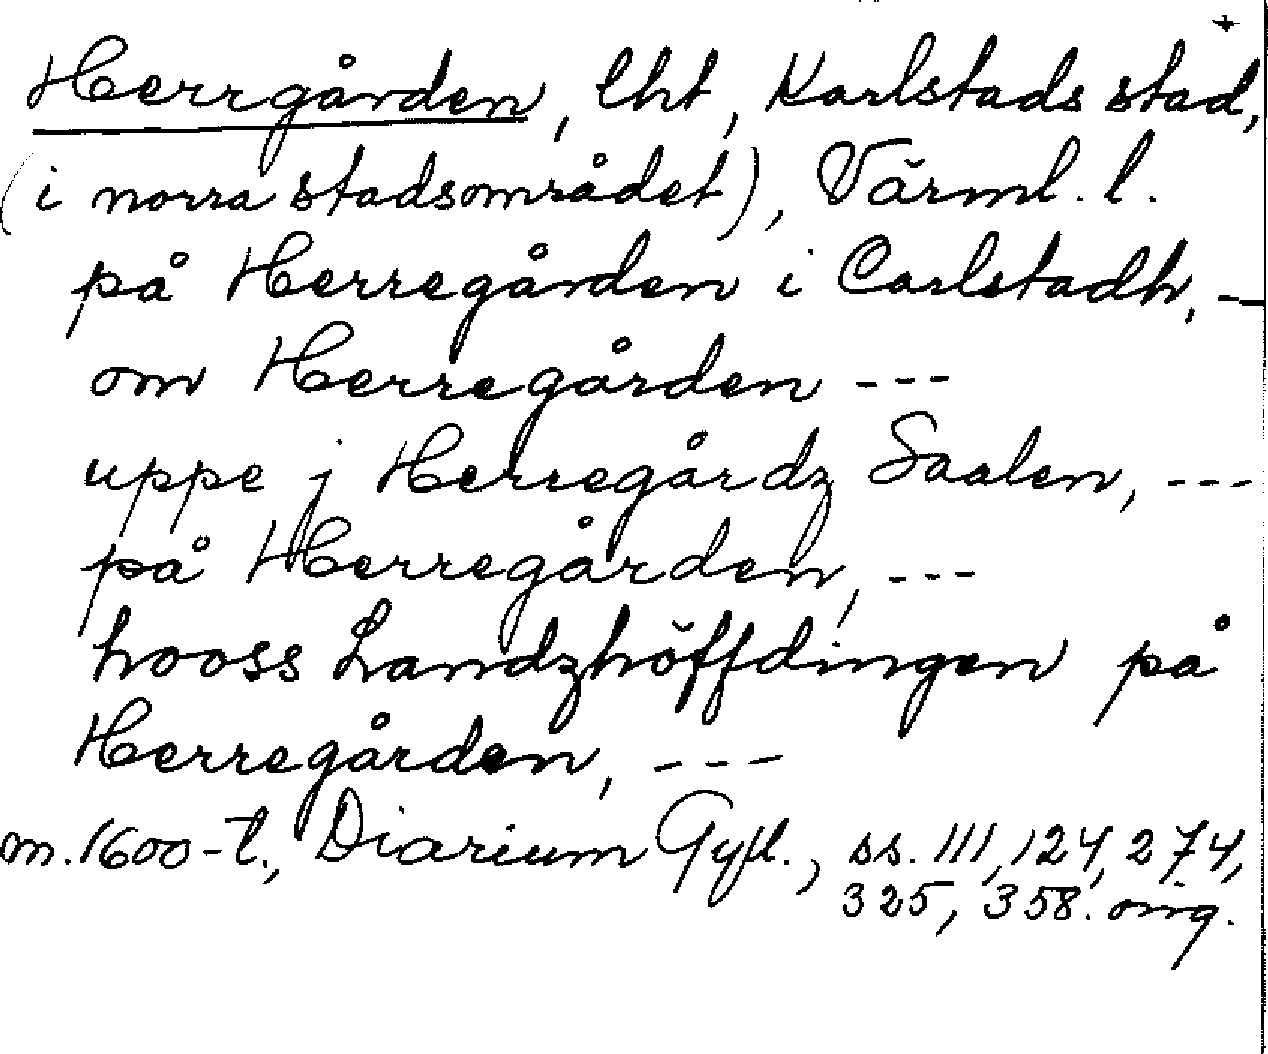 +
Herrgården, lht, Karlstads stad,
(i norra stadsområdet), Värml. l.
på Herregården i Carlstadh, -
om Herregården ---
uppe j Herregårdz Saalen, ---
på Herregården, ---
hooss Landzhöffdingen på
Herregården, ---
m. 1600-t., Diarium Gyll., ss. 111, 124, 274,
325, 358. orig.